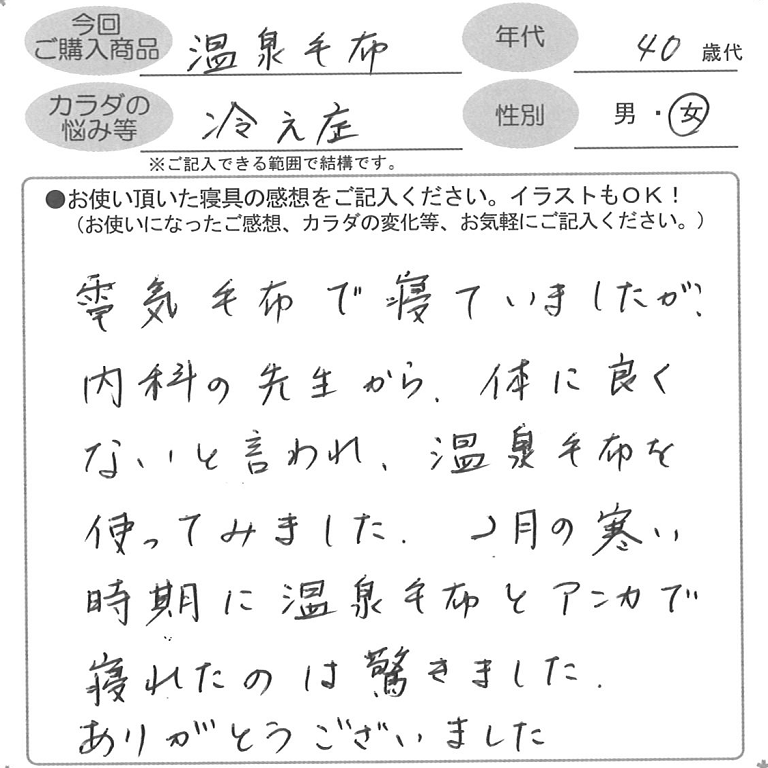 今回
ご購入商品 温泉毛布 年代 40 歳代
カラダの
悩み等 冷え症 性別 男・女
※ご記入できる範囲で結構です。
●お使い頂いた寝具の感想をご記入ください。イラストもOK!
(お使いになったご感想、カラダの変化等、お気軽にご記入ください。)
電気毛布で寝ていましたが、
内科の先生から、体に良く
ないと言われ、温泉毛布を
使ってみました。 2月の寒い
時期に温泉毛布とアンカで
寝れたのは驚きました。
ありがとうございました